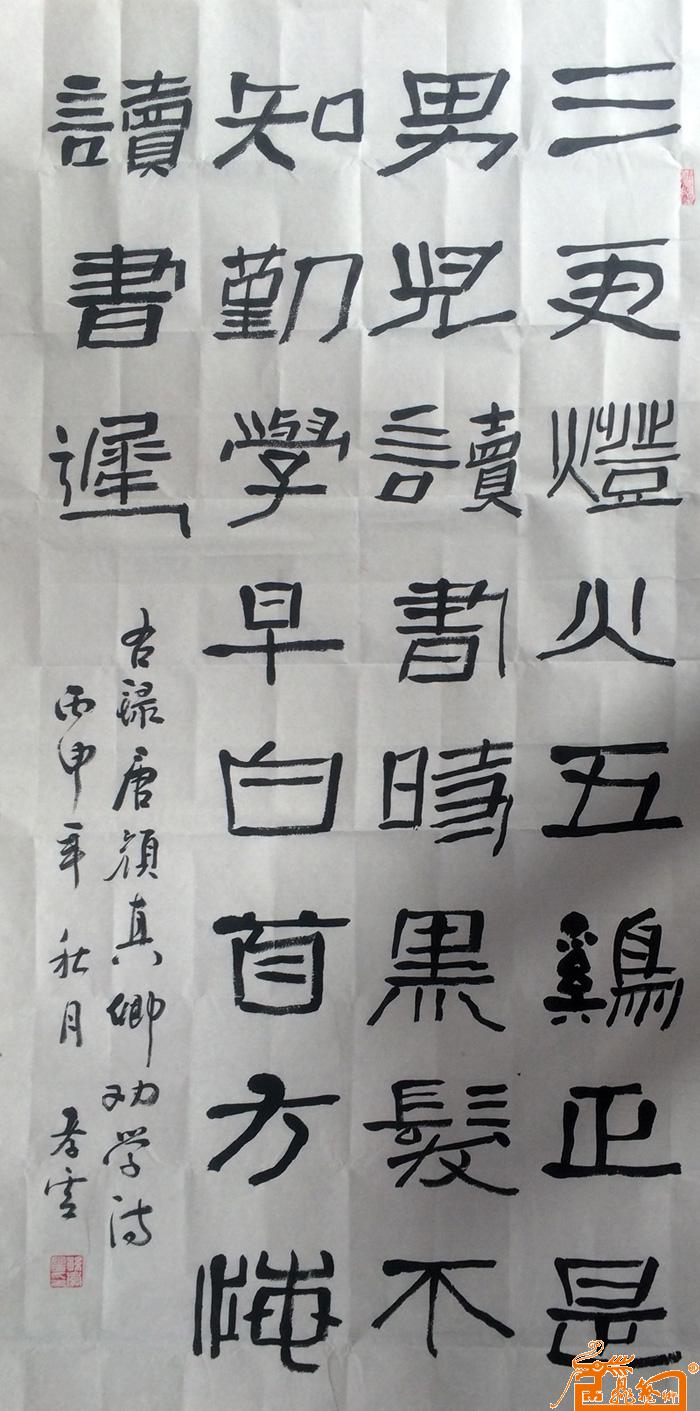 三更燈火五鷄正是
男兒讀書時黑髮不
知勤學早白首方悔
讀書遲
右録唐顔真卿劝学诗
丙申年秋月